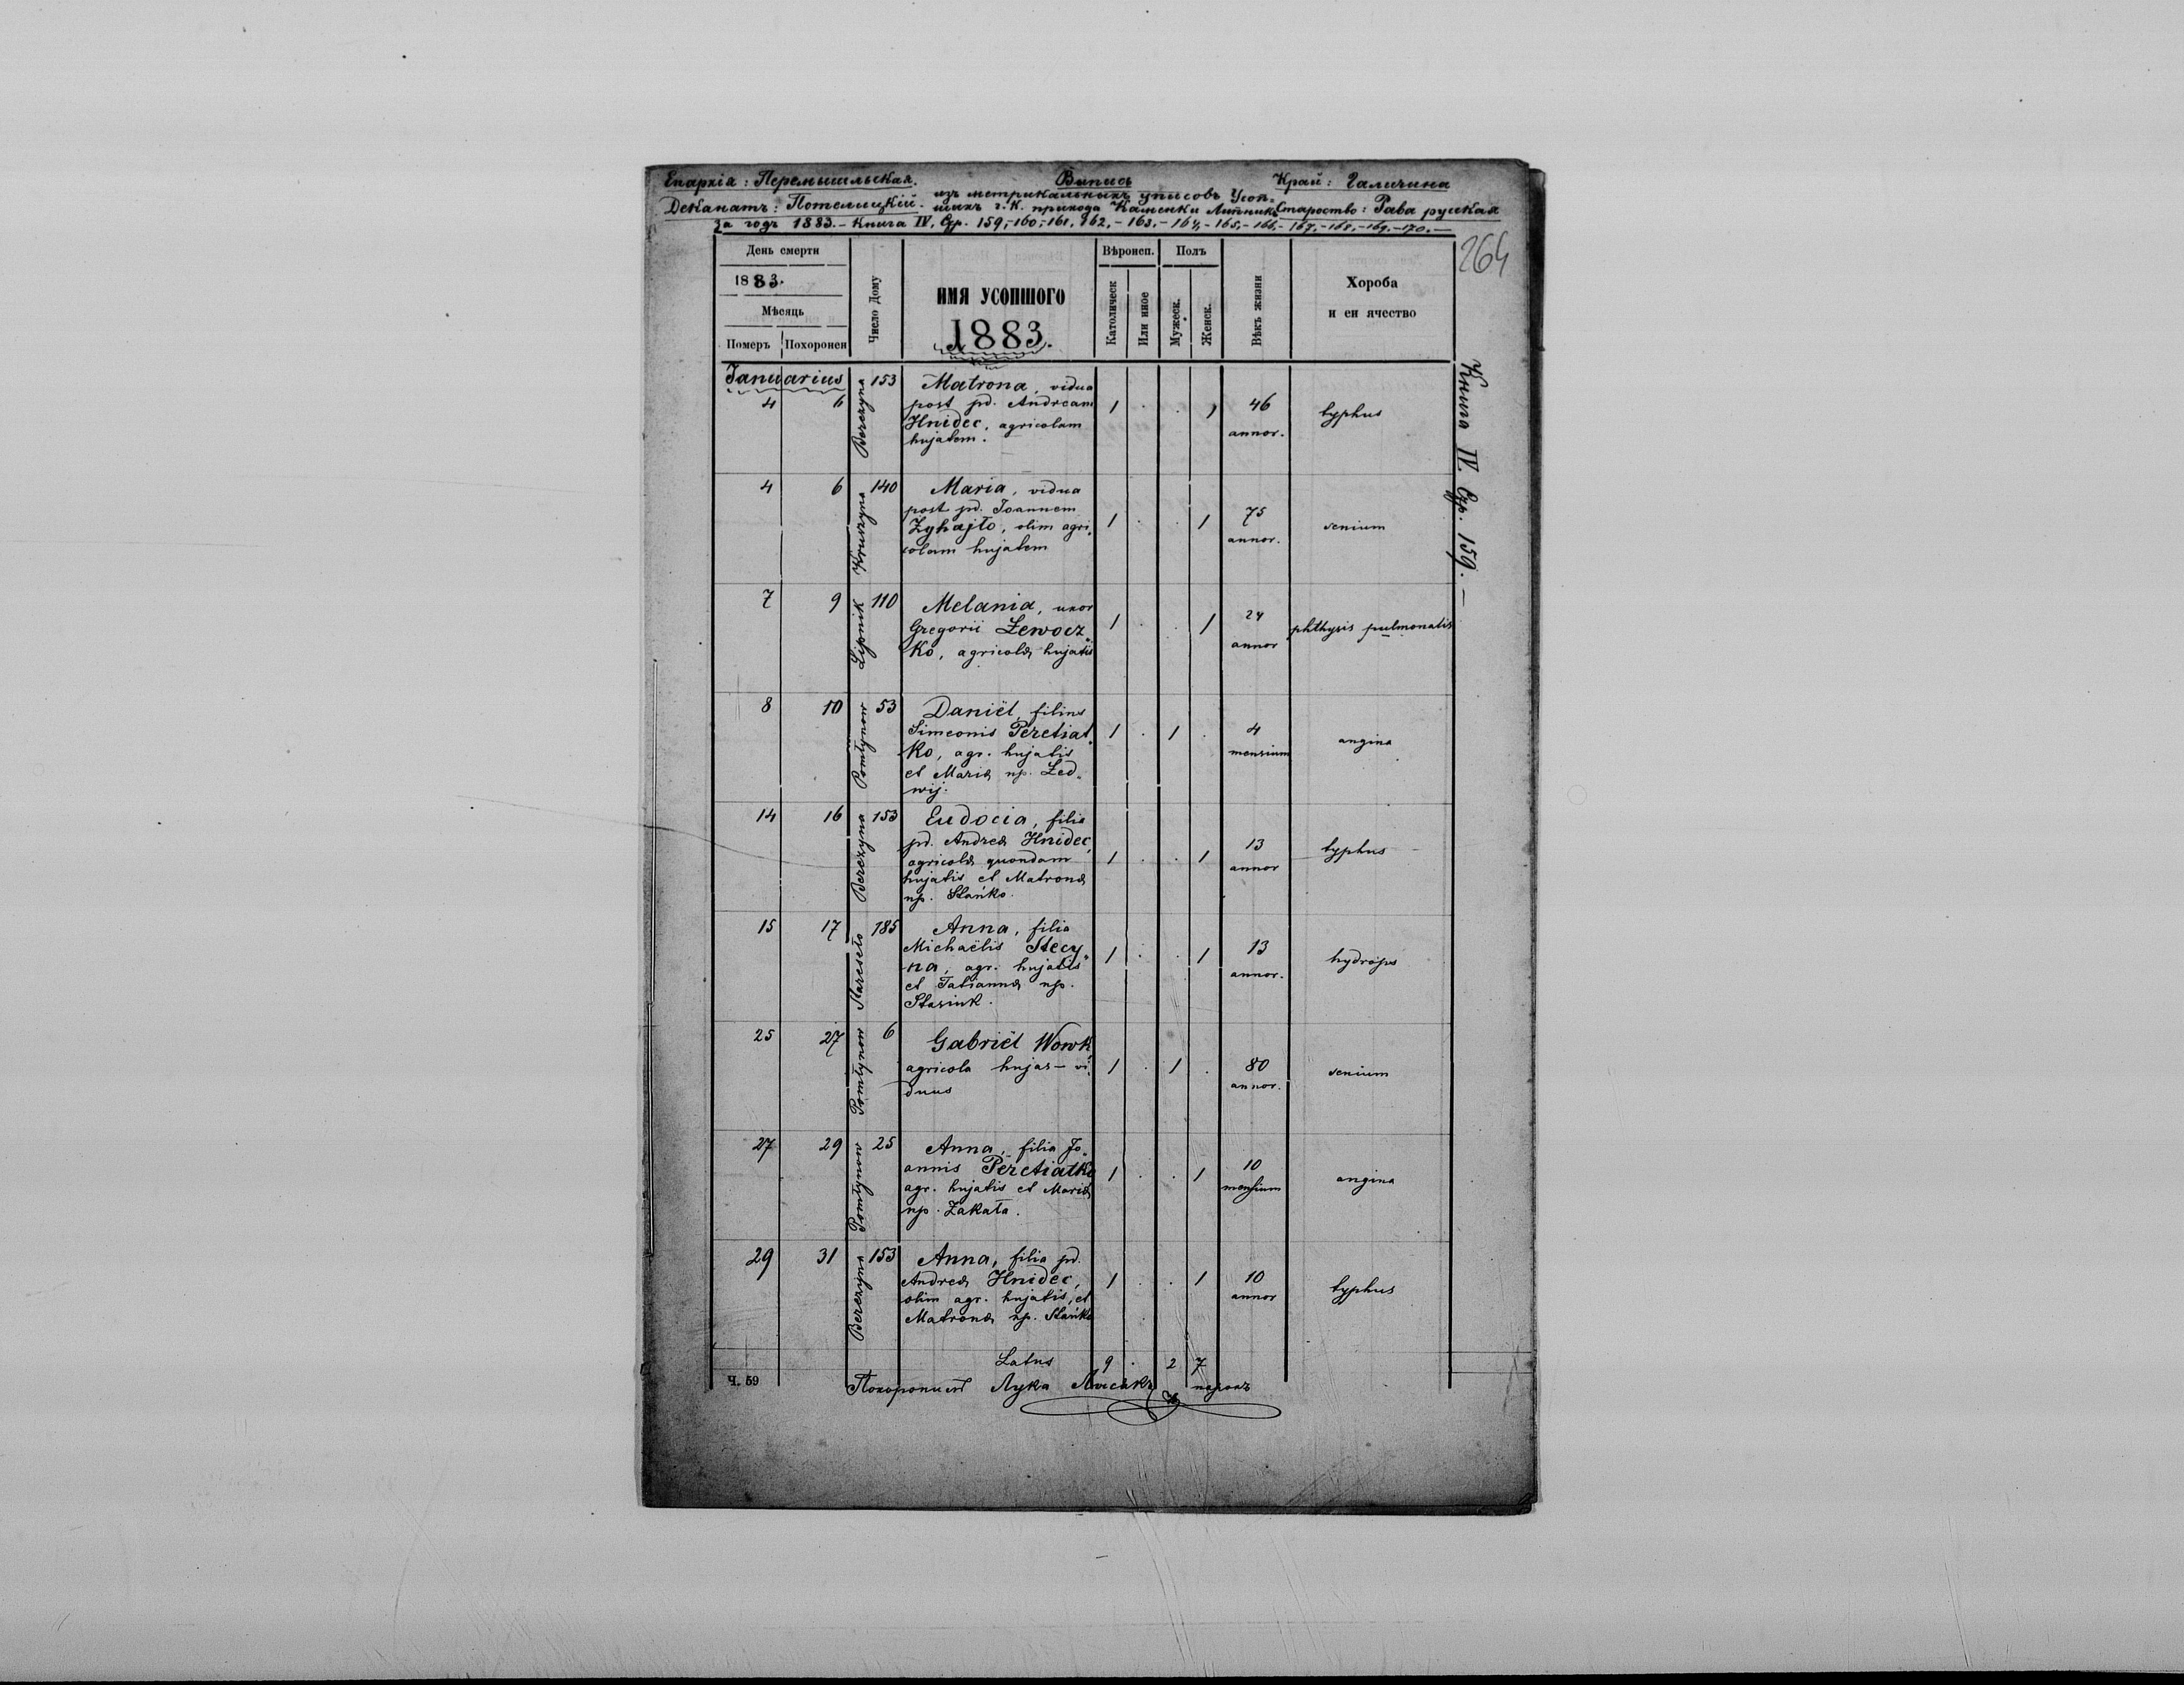 Епархія: Перемышльская.
Выпись
Край: Галичина
Деканатъ: Потелицкій.
изъ метрикальныхъ уписовъ Усоп-
шихъ г. к. прихода Каменки Липникъ
Староство: Рава руская
За годъ 1883. - Книга IV. Стр. 159,-160,-161,-162,-163,-164,-165,-166,-167,-168,-169,-170.-
264
День смерти
1883.
Мѣсяць
Померъ Похоронен
Число Дому
ИМЯ УСОПШОГО
1883.
Вѣроисп.
Католическ
Или иное
Полъ
Мужеск.
Женск.
Вѣкъ жизни
Хороба
и еи ячество
Книга IV. Стр. 159.-
Januarius
4 6 Berezyna 153 Matrona, vidua
post pd. Andream
Hnidec, agricolam
hujatem.
1 . . 1 46
annor.
typhus
4 6 Kruszyna 140 Maria, vidua
post pd. Joannem
Zyhajło, olim agri-
colam hujatem
1 . . 1 75
annor.
senium
7 9 Lipnik 110 Melania, uxor
Gregorii Lewocz-
ko, agricolæ hujatis
1 . . 1 24
annor
phthysis pulmonalis
8 10 Pomłynow 53 Daniël, filius
Simeonis Peretiat-
ko, agr. hujatis
et Mariæ np. Led-
wij.
1 . 1 . 4
mensium
angina
14 16 Berezyna 153 Eudocia, filia
pd. Andreæ Hnidec,
agricolæ quondam
hujatis et Matronæ
np. Stańko.
1 . . 1 13
annor
typhus
15 17 Stareseło 185 Anna, filia
Michaëlis Stecy-
na, agr. hujatis
et Tatiannæ np.
Stasiuk.
1 . . 1 13
annor.
hydrops
25 27 Pomłynow 6 Gabriël Wowk
agricola hujas - vi-
duus
1 . 1 . 80
annor.
senium
27 29 Pomłynow 25 Anna, filia Jo-
annis Peretiatko
agr. hujatis et Mariæ
np. Zakała.
1 . . 1 10
mensium
angina
29 31 Berezyna 153 Anna, filia pd.
Andreæ Hnidec,
olim agr. hujatis, et
Matronæ np. Stańko
1 . . 1 10
annor
typhus
Latus 9 . 2 7
Ч. 59
Похоронилъ Лука парохъ